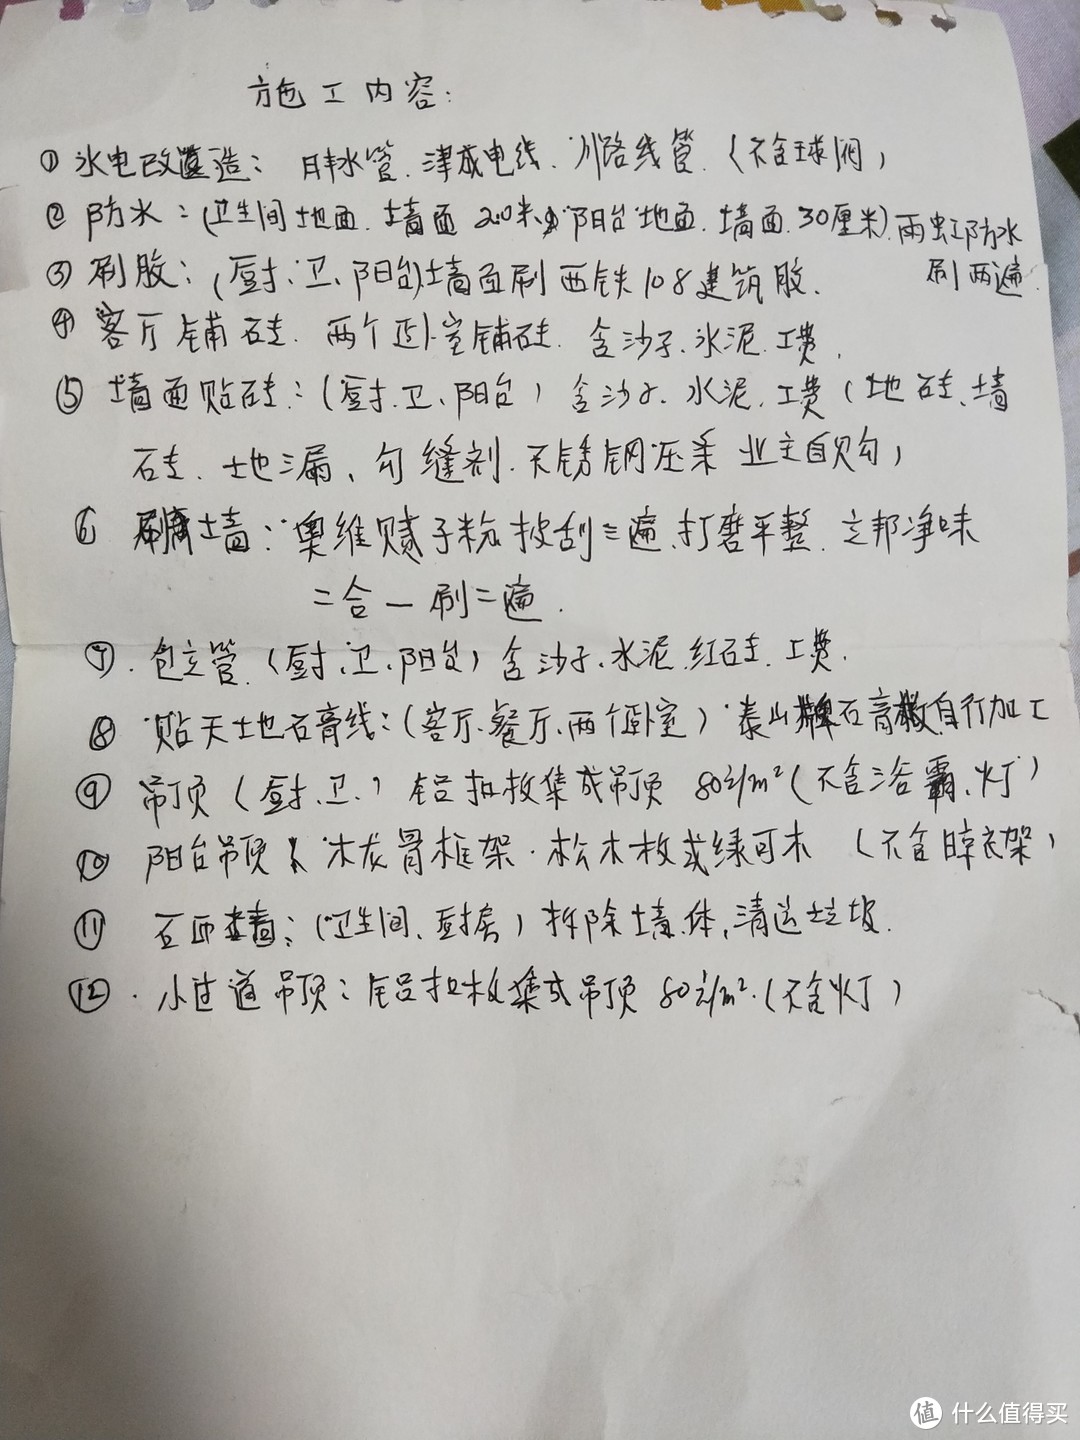 施工内容:
① 水电改造: 日丰水管、津成电线、川路线管.(不含球阀)
② 防水:(卫生间地面.墙面2.0米、阳台地面.墙面.30厘米).雨虹防水
刷两遍.
③ 刷胶:(厨、卫、阳台)墙面刷西铁108建筑胶.
④ 客厅铺砖.两个卧室铺砖.含沙子.水泥.工费.
⑤ 墙面贴砖:(厨.卫、阳台)含沙子.水泥.工费(地砖、墙
砖.地漏、勾缝剂.不锈钢压条 业主自购)
⑥ 刷墙:奥维腻子粉披刮三遍.打磨平整.立邦净味
二合一刷二遍.
⑦.包立管(厨、卫、阳台)含沙子、水泥.红砖.工费.
⑧ 贴天地石膏线:(客厅、餐厅、两个卧室)泰山牌石膏板自行加工
⑨ 吊顶(厨.卫.)铝扣板集成吊顶 80元/m²(不含浴霸、灯)
⑩ 阳台吊顶 木龙骨框架.松木板或绿可木(不含晾衣架)
⑪ 石 墙:(卫生间、厨房)拆除墙体,清运垃圾.
⑫.小过道吊顶:铝扣板集成吊顶 80元/m².(不含灯)
值 什么值得买